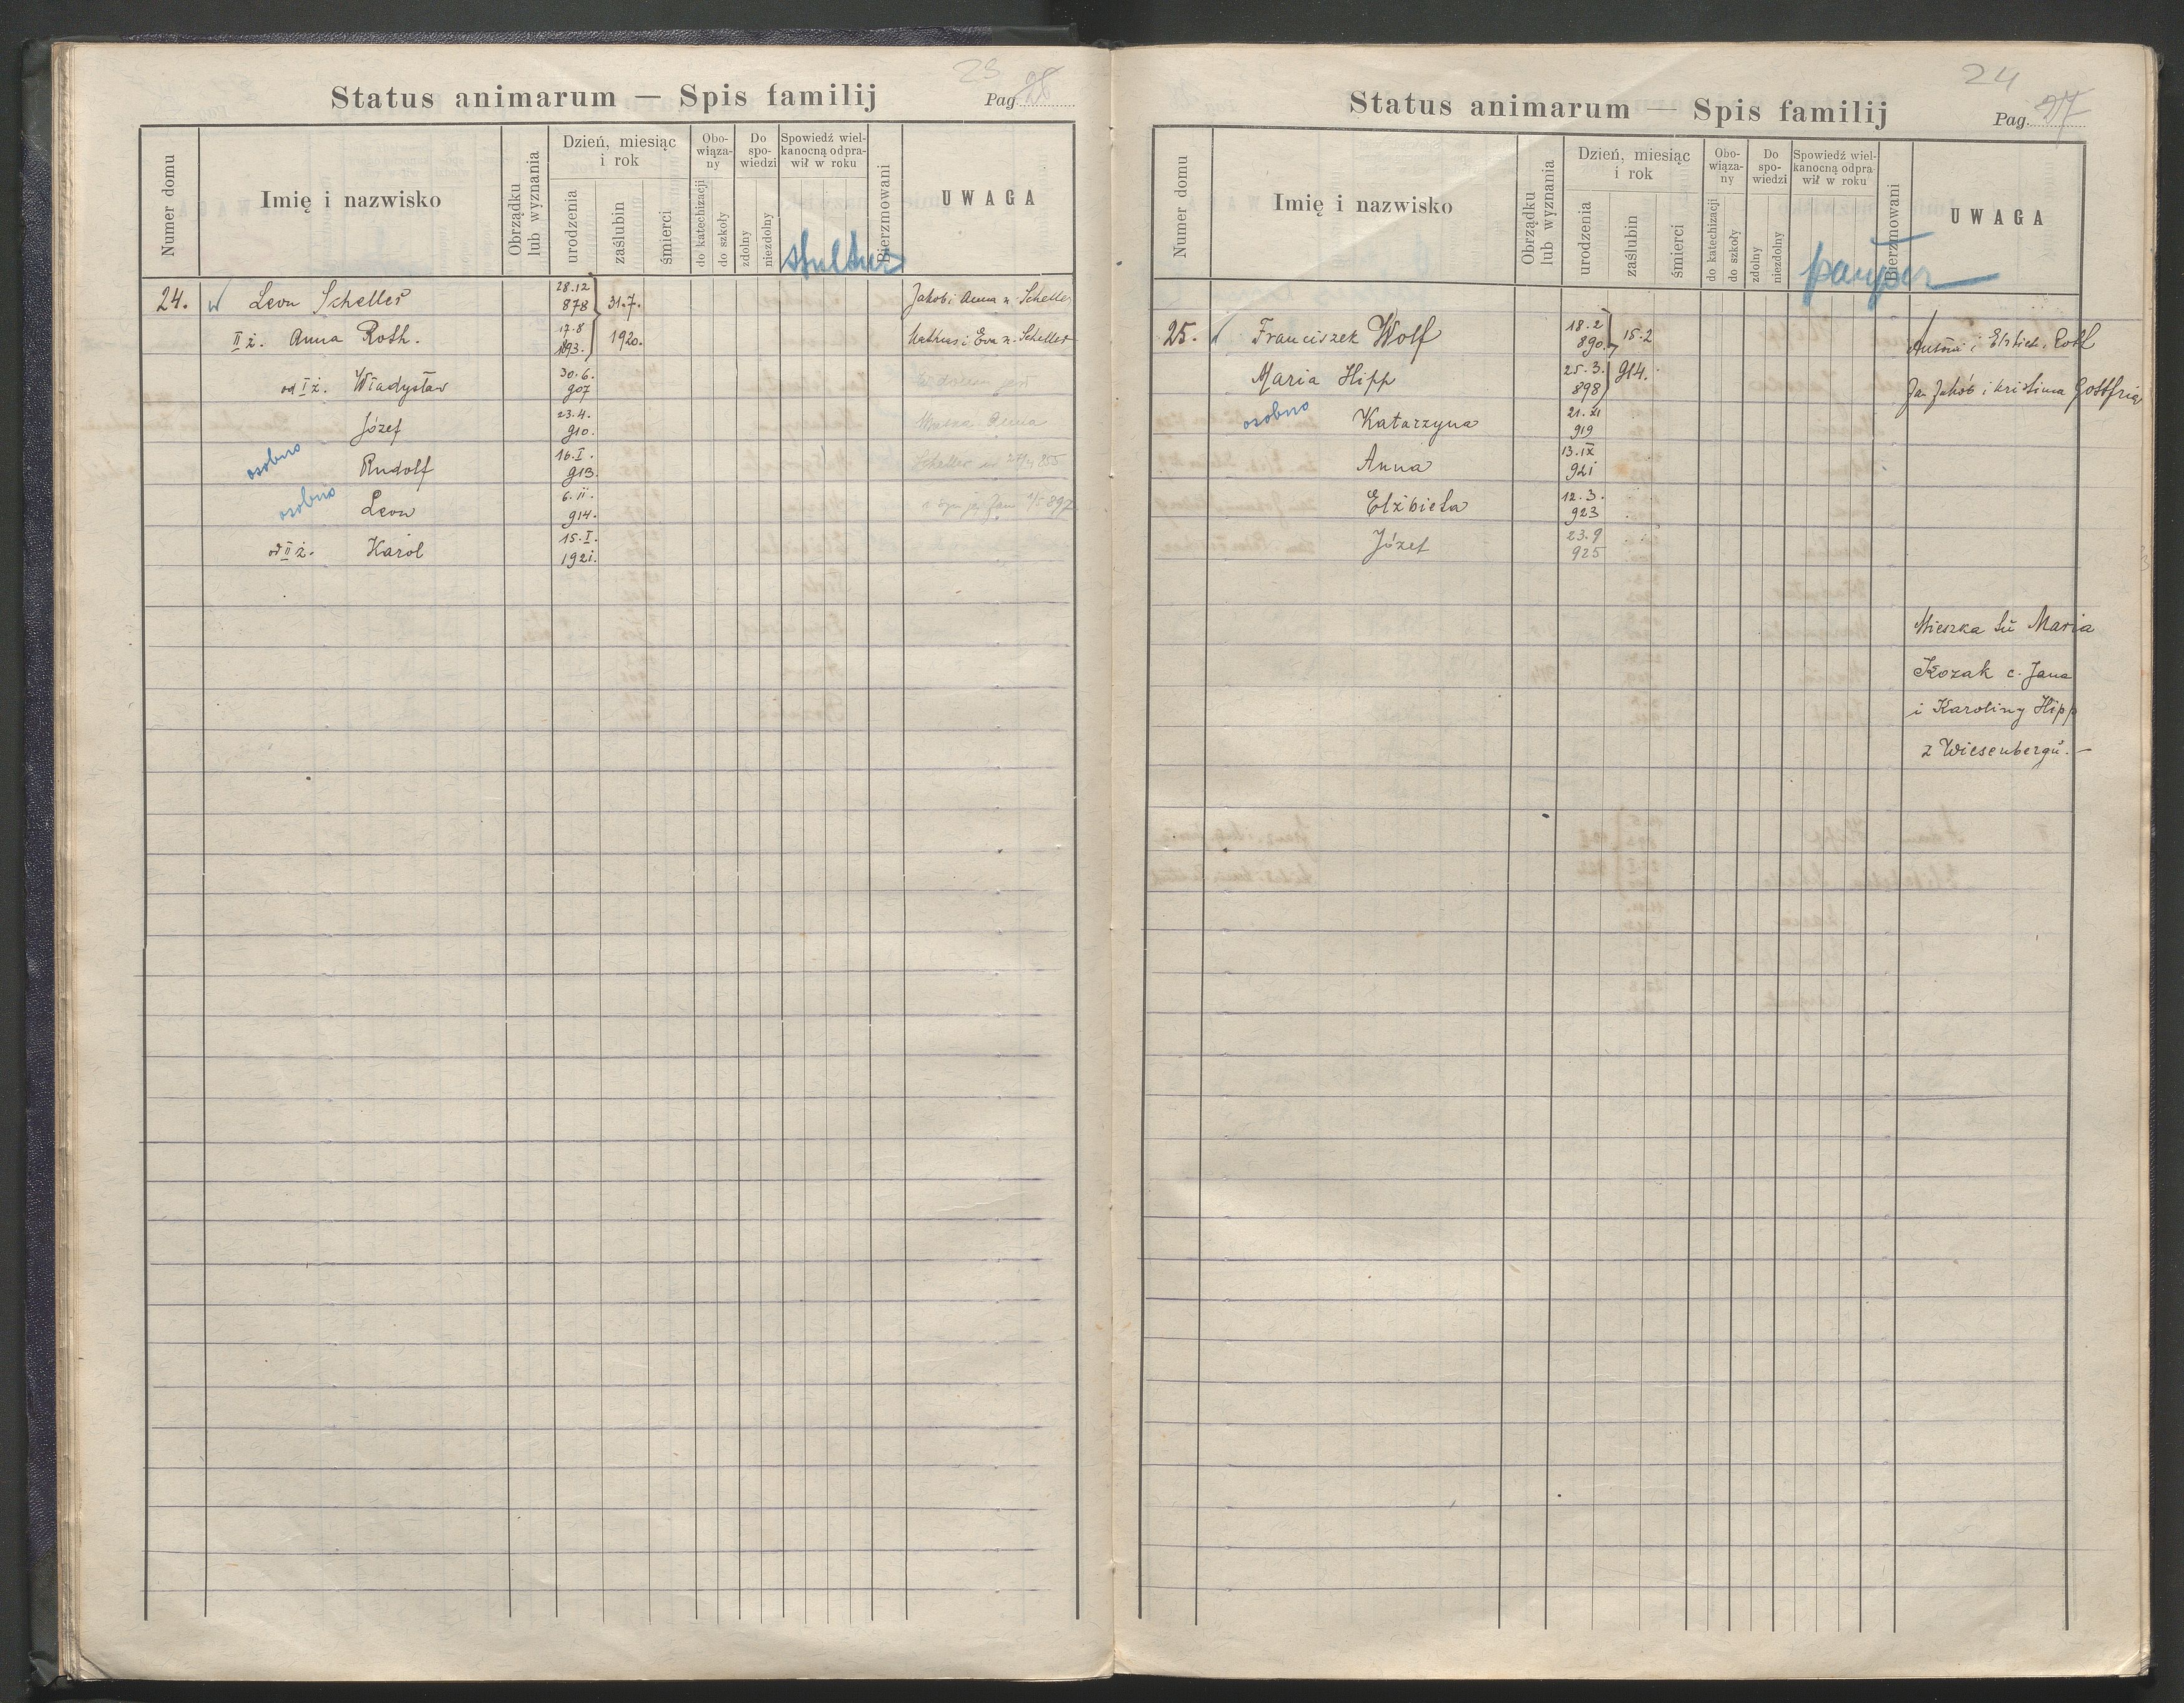 23
Status animarum — Spis familij
Pag.
Numer domu
Imię i nazwisko
Obrządku lub wyznania
Dzień, miesiąc i rok
urodzenia
zaślubin
śmierci
Obowiązany
do katechizacji
do szkoły
Do spowiedzi
zdolny
niezdolny
Spowiedź wielkanocną odprawił w roku
Bierzmowani
UWAGA
24. Leon Scheller 28.12 878 31.7. Jakob i Anna n. Scheller
II ż. Anna Roth. 17.8 893. 1920. i Eva n. Scheller
od I ż. Władysław 30.6. 907
Józef 23.4. 910.
osobno Rudolf 16.I. 913.
osobno Leon 6.II. 914.
od II ż. Karol 15.I. 1921.
24
Status animarum — Spis familij
Pag. 27
Numer domu
Imię i nazwisko
Obrządku lub wyznania
Dzień, miesiąc i rok
urodzenia
zaślubin
śmierci
Obowiązany
do katechizacji
do szkoły
Do spowiedzi
zdolny
niezdolny
Spowiedź wielkanocną odprawił w roku
pauper
Bierzmowani
UWAGA
25. Franciszek Wolf 18.2 890. 15.2
Maria Hipp 25.3. 898 914. Jan Jakób i Kristina
osobno Katarzyna 21.XI 919
Anna 13.IX 921
Elżbieta 12.3. 923
Józef 23.9 925
Mieszka tu Maria
Kozak c. Jana
i Karoliny Hipp
z Wiesenbergu. —